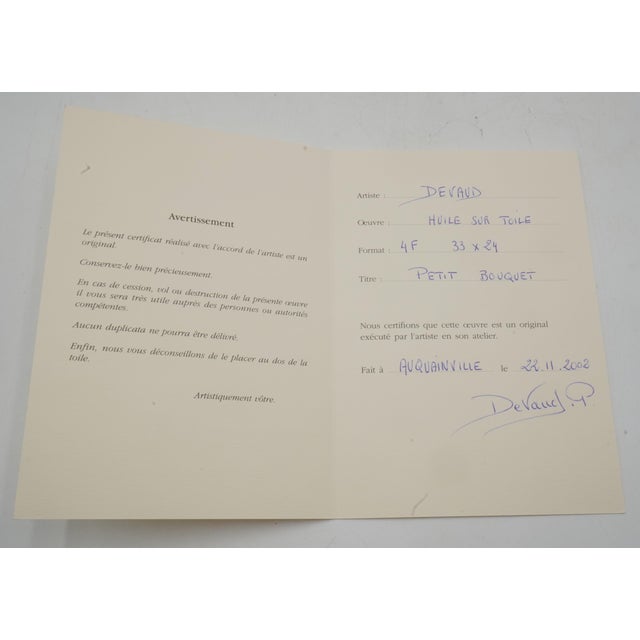 Avertissement
Le présent certificat réalisé avec l'accord de l'artiste est un
original.
Conservez-le bien précieusement.
En cas de cession, vol ou destruction de la présente œuvre
il vous sera très utile auprès des personnes ou autorités
compétentes.
Aucun duplicata ne pourra être délivré.
Enfin, nous vous déconseillons de le placer au dos de la
toile.
Artistiquement vôtre.
Artiste : DEVAUD
Œuvre : HUILE SUR TOILE
Format : 4F 33 x 24
Titre : PETIT BOUQUET
Nous certifions que cette œuvre est un original
exécuté par l'artiste en son atelier.
Fait à AUQUAINVILLE le 22.11.2002
Devaud.P